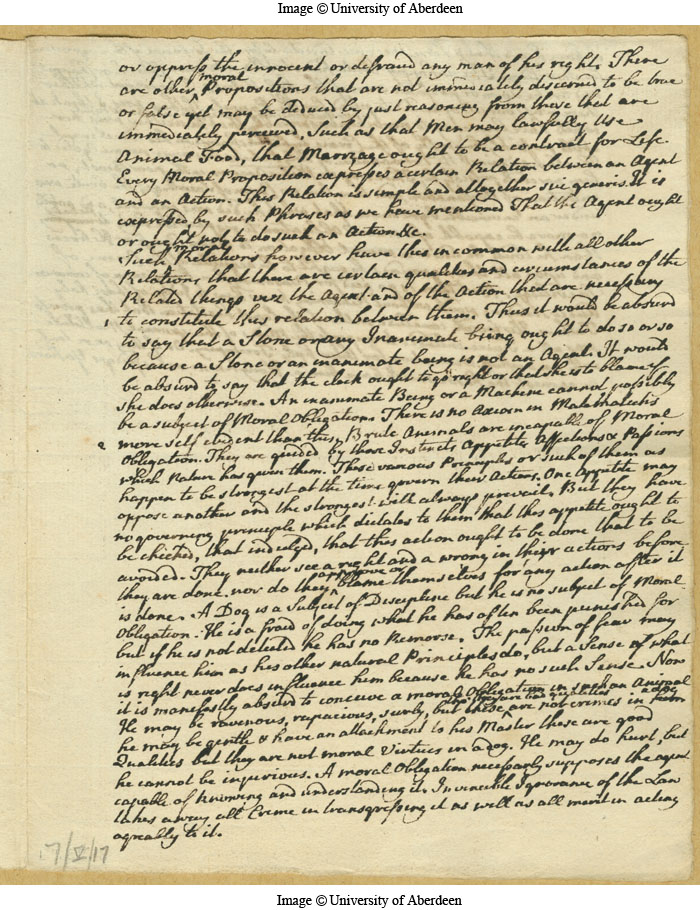 Image © University of Aberdeen
or oppress the innocent or defraud any man of his right. There
moral
are other Propositions that are not immediately discerned to be true
or false yet may be deduced by just reasoning from those that are
immediately perceived. Such as that Men may lawfully Use
Animal Food, that Marriage ought to be a contract for Life
Every Moral Proposition expresses a certain Relation between an Agent
and an Action. This Relation is simple and altogether sui generis. It is
expressed by such Phrases as we have mentioned That the Agent ought
or ought not to do such an Action &c.
moral
Such Relations however have this in common with all other
Relations that there are certain qualities and circumstances of the
Related things vizt the Agent and of the Action that are necessary
1 to constitute this relation between them. Thus it would be absurd
to say that a Stone or any Inanimate being ought to do so or so
because a Stone or an inanimate being is not an Agent. It would
be absurd to say that the clock ought to go right or that she is to blame if
she does otherwise. An inanimate Being or a Machine cannot possibly
be a subject of Moral Obligation. There is no Axiom in Mathematicks
2 more self evident than this. Brute Animals are incapable of Moral
Obligation. They are guided by those Instincts Appetites Affections & Passions
which Nature has given them. These various Principles or such of them as
happen to be strongest at the time govern their Actions. One Appetite may
oppose another and the strongest will always prevail. But they have
no governing principle which dictates to them that this appetite ought to
be checked, that indulged, that this action ought to be done that to be
avoided. They neither see a right and a wrong in their actions before
approve or
they are done nor do they blame themselves for any action after it
is done. A Dog is a Subject of Discipline but he is no subject of Moral
Obligation. He is afraid of doing what he has often been punished for
but if he is not detected he has no Remorse. The passion of fear may
influence him as his other natural Principles do, but a Sense of what
is right never does influence him because he has no such Sense. Now
it is manifestly absurd to conceive a moral Obligation in such an Animal
these are bad qualities a dog
He may be ravenous, rapacious, surly, but these are not crimes in him
he may be gentle & have an attachment to his Master these are good
Qualities but they are not moral Virtues in a dog. He may do hurt, but
he cannot be injurious. A moral Obligation necessarly supposes the agent
capable of knowing and understanding it. Invincible Ignorance of the Law
takes away all Crime in transgressing it as well as all merit in acting
agreably to it.
7/V/17
Image © University of Aberdeen